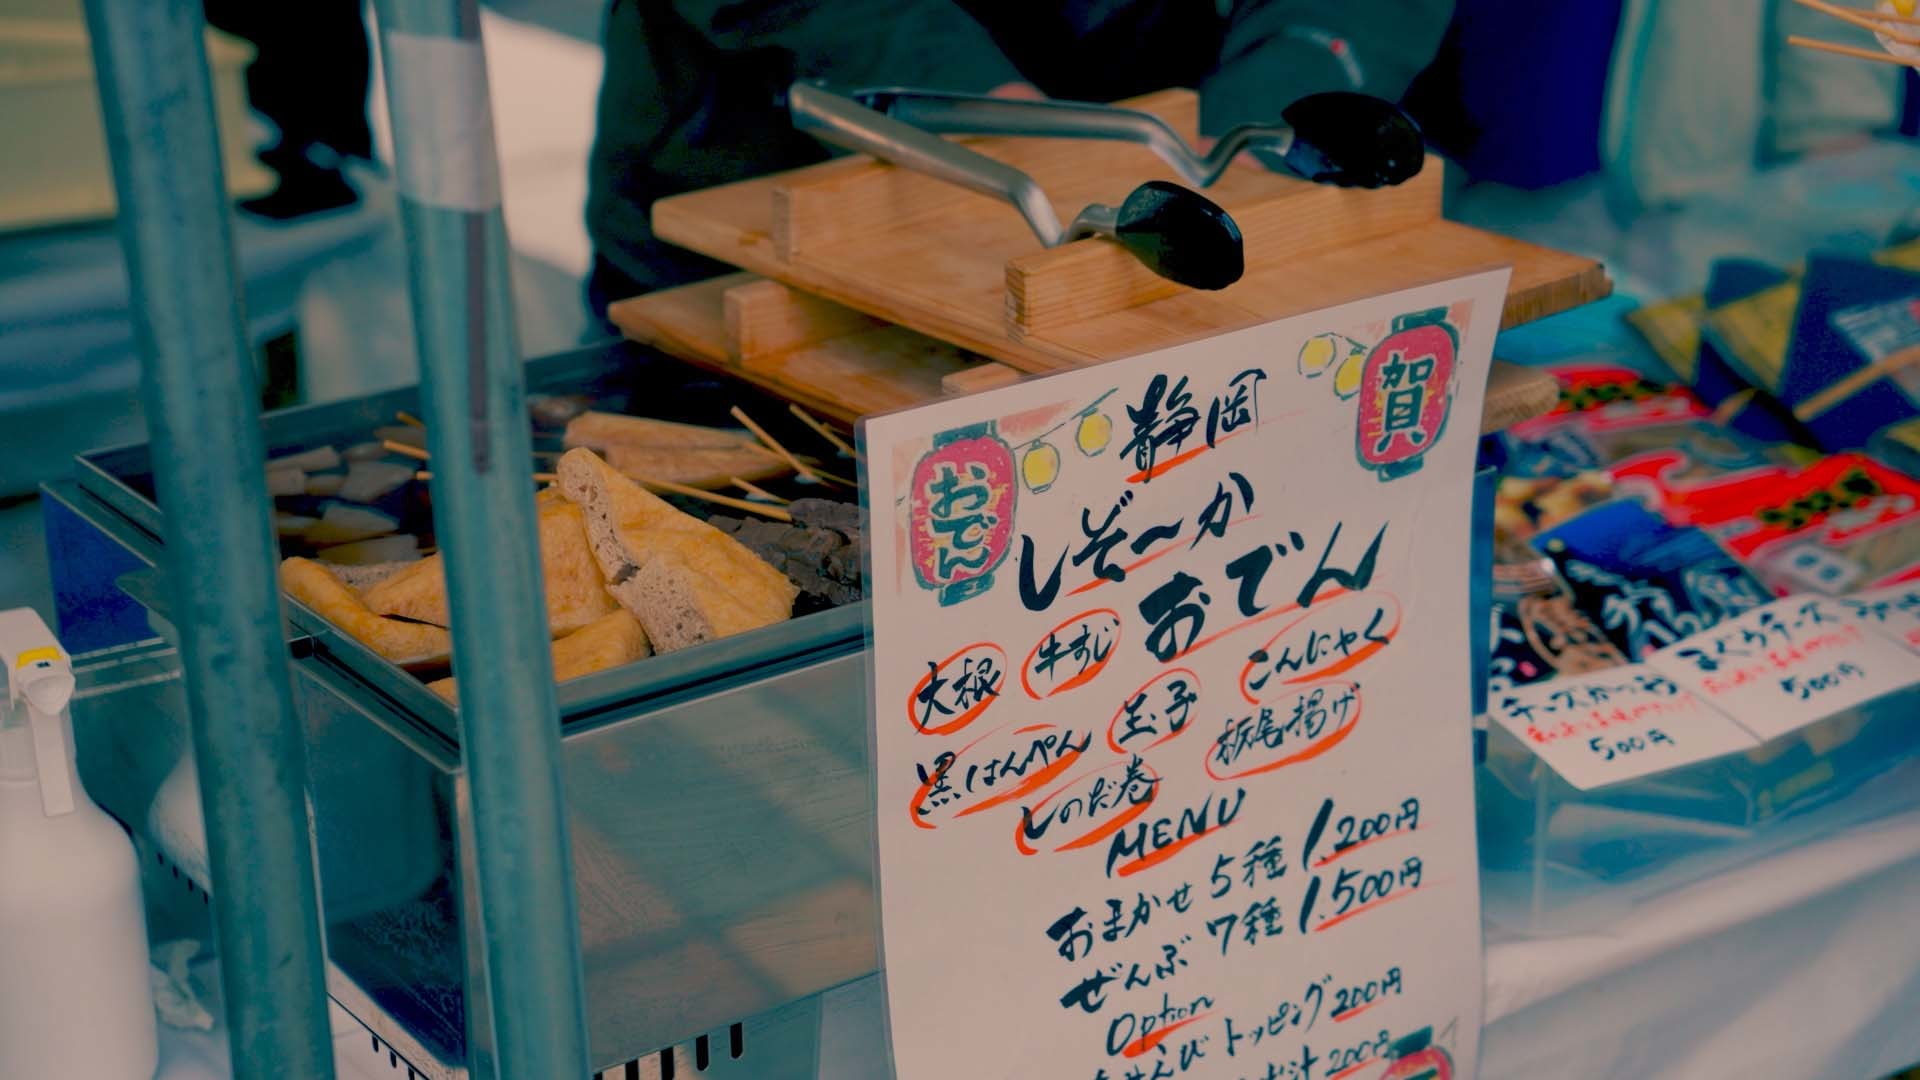 静岡
賀
おでん
しぞ〜か
おでん
大根 牛すじ こんにゃく
黒はんぺん 玉子 栃尾揚げ
しのだ巻
MENU
おまかせ 5種 1.200円
ぜんぶ 7種 1.500円
Option
トッピング 200円
汁 200円
チーズかつお
500円
まぐろチーズ
500円